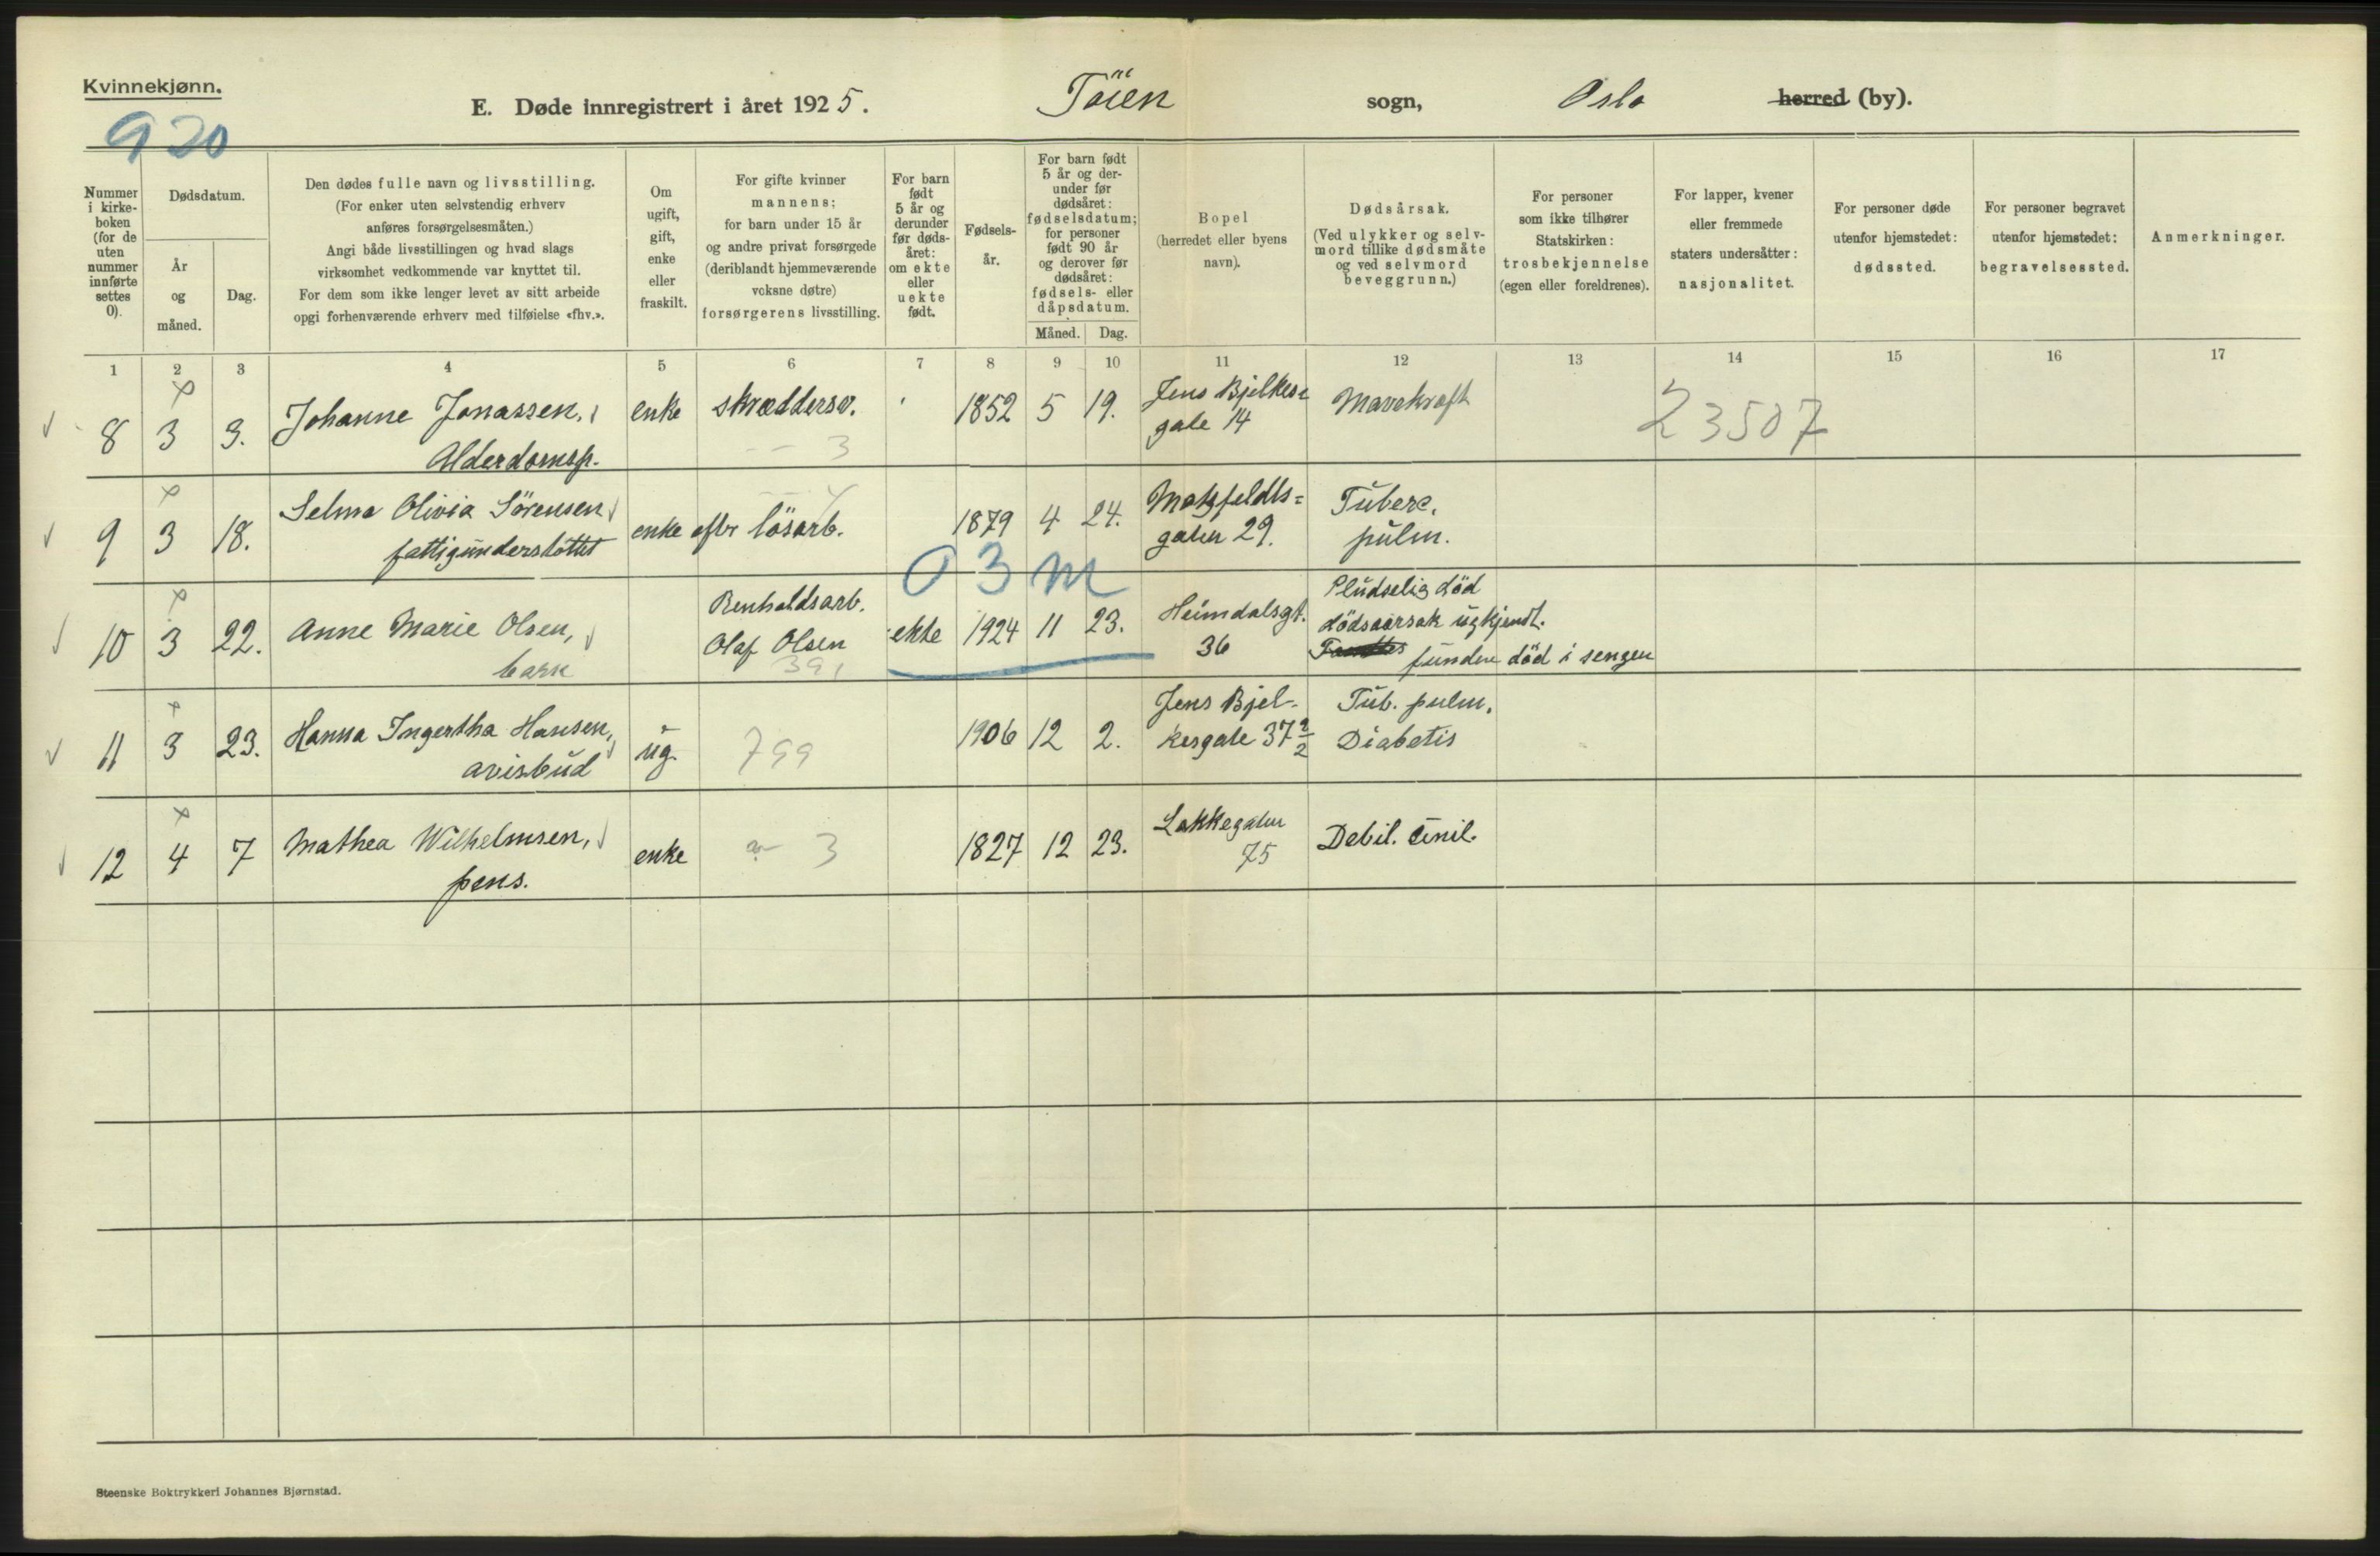 Kvinnekjønn.
920
E. Døde innregistrert i året 1925. Töien sogn, Oslo herred (by).
Nummer i kirke- boken (for de uten nummer innførte settes 0).
Dødsdatum.
År og måned.
Dag.
Den dødes fulle navn og livsstilling.
(For enker uten selvstendig erhverv
anføres forsørgelsesmåten.)
Angi både livsstillingen og hvad slags
virksomhet vedkommende var knyttet til.
For dem som ikke lenger levet av sitt arbeide
opgi forhenværende erhverv med tilføielse «fhv.».
Om ugift, gift, enke eller fraskilt.
For gifte kvinner
mannens;
for barn under 15 år
og andre privat forsørgede
(deriblandt hjemmeværende
voksne døtre)
forsørgerens livsstilling.
For barn født 5 år og derunder før døds- året: om ekte eller uekte født.
Fødsels- år.
For barn født
5 år og der-
under før
dødsåret:
fødselsdatum;
for personer
født 90 år
og derover før
dødsåret:
fødsels- eller
dåpsdatum.
Måned. Dag.
Bopel
(herredet eller byens
navn).
Dødsårsak.
(Ved ulykker og selv-
mord tillike dødsmåte
og ved selvmord
beveggrunn.)
For personer
som ikke tilhører
Statskirken:
trosbekjennelse
(egen eller foreldrenes).
For lapper, kvener
eller fremmede
staters undersåtter:
nasjonalitet.
For personer døde
utenfor hjemstedet:
dødssted.
For personer begravet
utenfor hjemstedet:
begravelsessted.
Anmerkninger.
1 2 3 4 5 6 7 8 9 10 11 12 13 14 15 16 17
8 3 3. Johanne Jonassen, enke skræddersv. 1852 5 19. Jens Bjelkes= Mavekræft
Alderdomsp. 3 gate 14 23507
9 3 18. Selma Olivia Sörensen enke eftr lösarb. 1879 4 24. Motzfeldts= Tuberc.
fattigunderstöttet gaten 29. pulm.
0 3 m
10 3 22. Anne Marie Olsen, Renholdsarb. ekte 1924 11 23. Heimdalsgt. Pludselig död
barn Olaf Olsen 36 dödsaarsak ugkjendt.
391 funden död i sengen
11 3 23. Hanna Ingertha Hansen, ug. 799 1906 12 2. Jens Bjel- Tub. pulm.
avisbud kesgate 37 2/2 Diabetis
12 4 7 Mathea Wilhelmsen, enke 3 1827 12 23. Lakkegaten Debil. senil.
pens. 75
Steenske Boktrykkeri Johannes Bjørnstad.